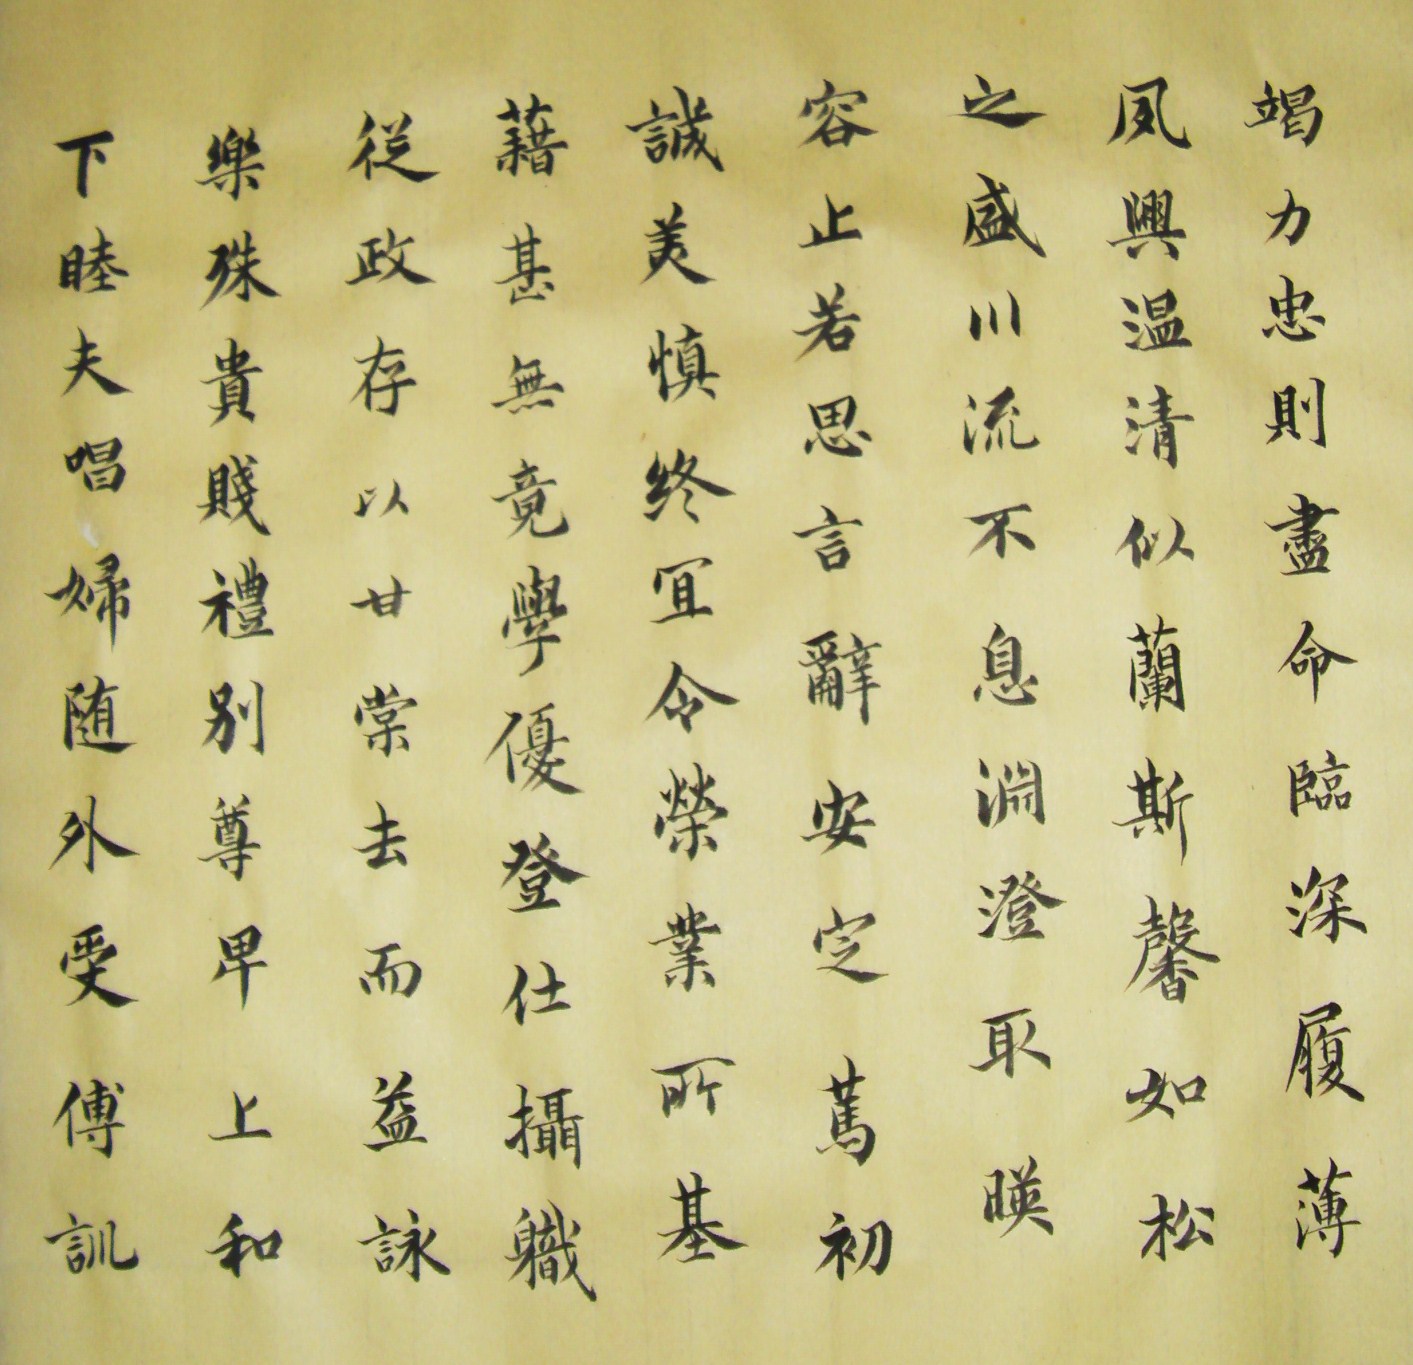 竭力忠則盡命臨深履薄
夙興温清似蘭斯馨如松
之盛川流不息淵澄取暎
容止若思言辭安定篤初
誠美慎終宜令榮業所基
藉甚無竟學優登仕攝職
従政存以甘棠去而益詠
樂殊貴賤禮别尊卑上和
下睦夫唱婦随外受傅訓